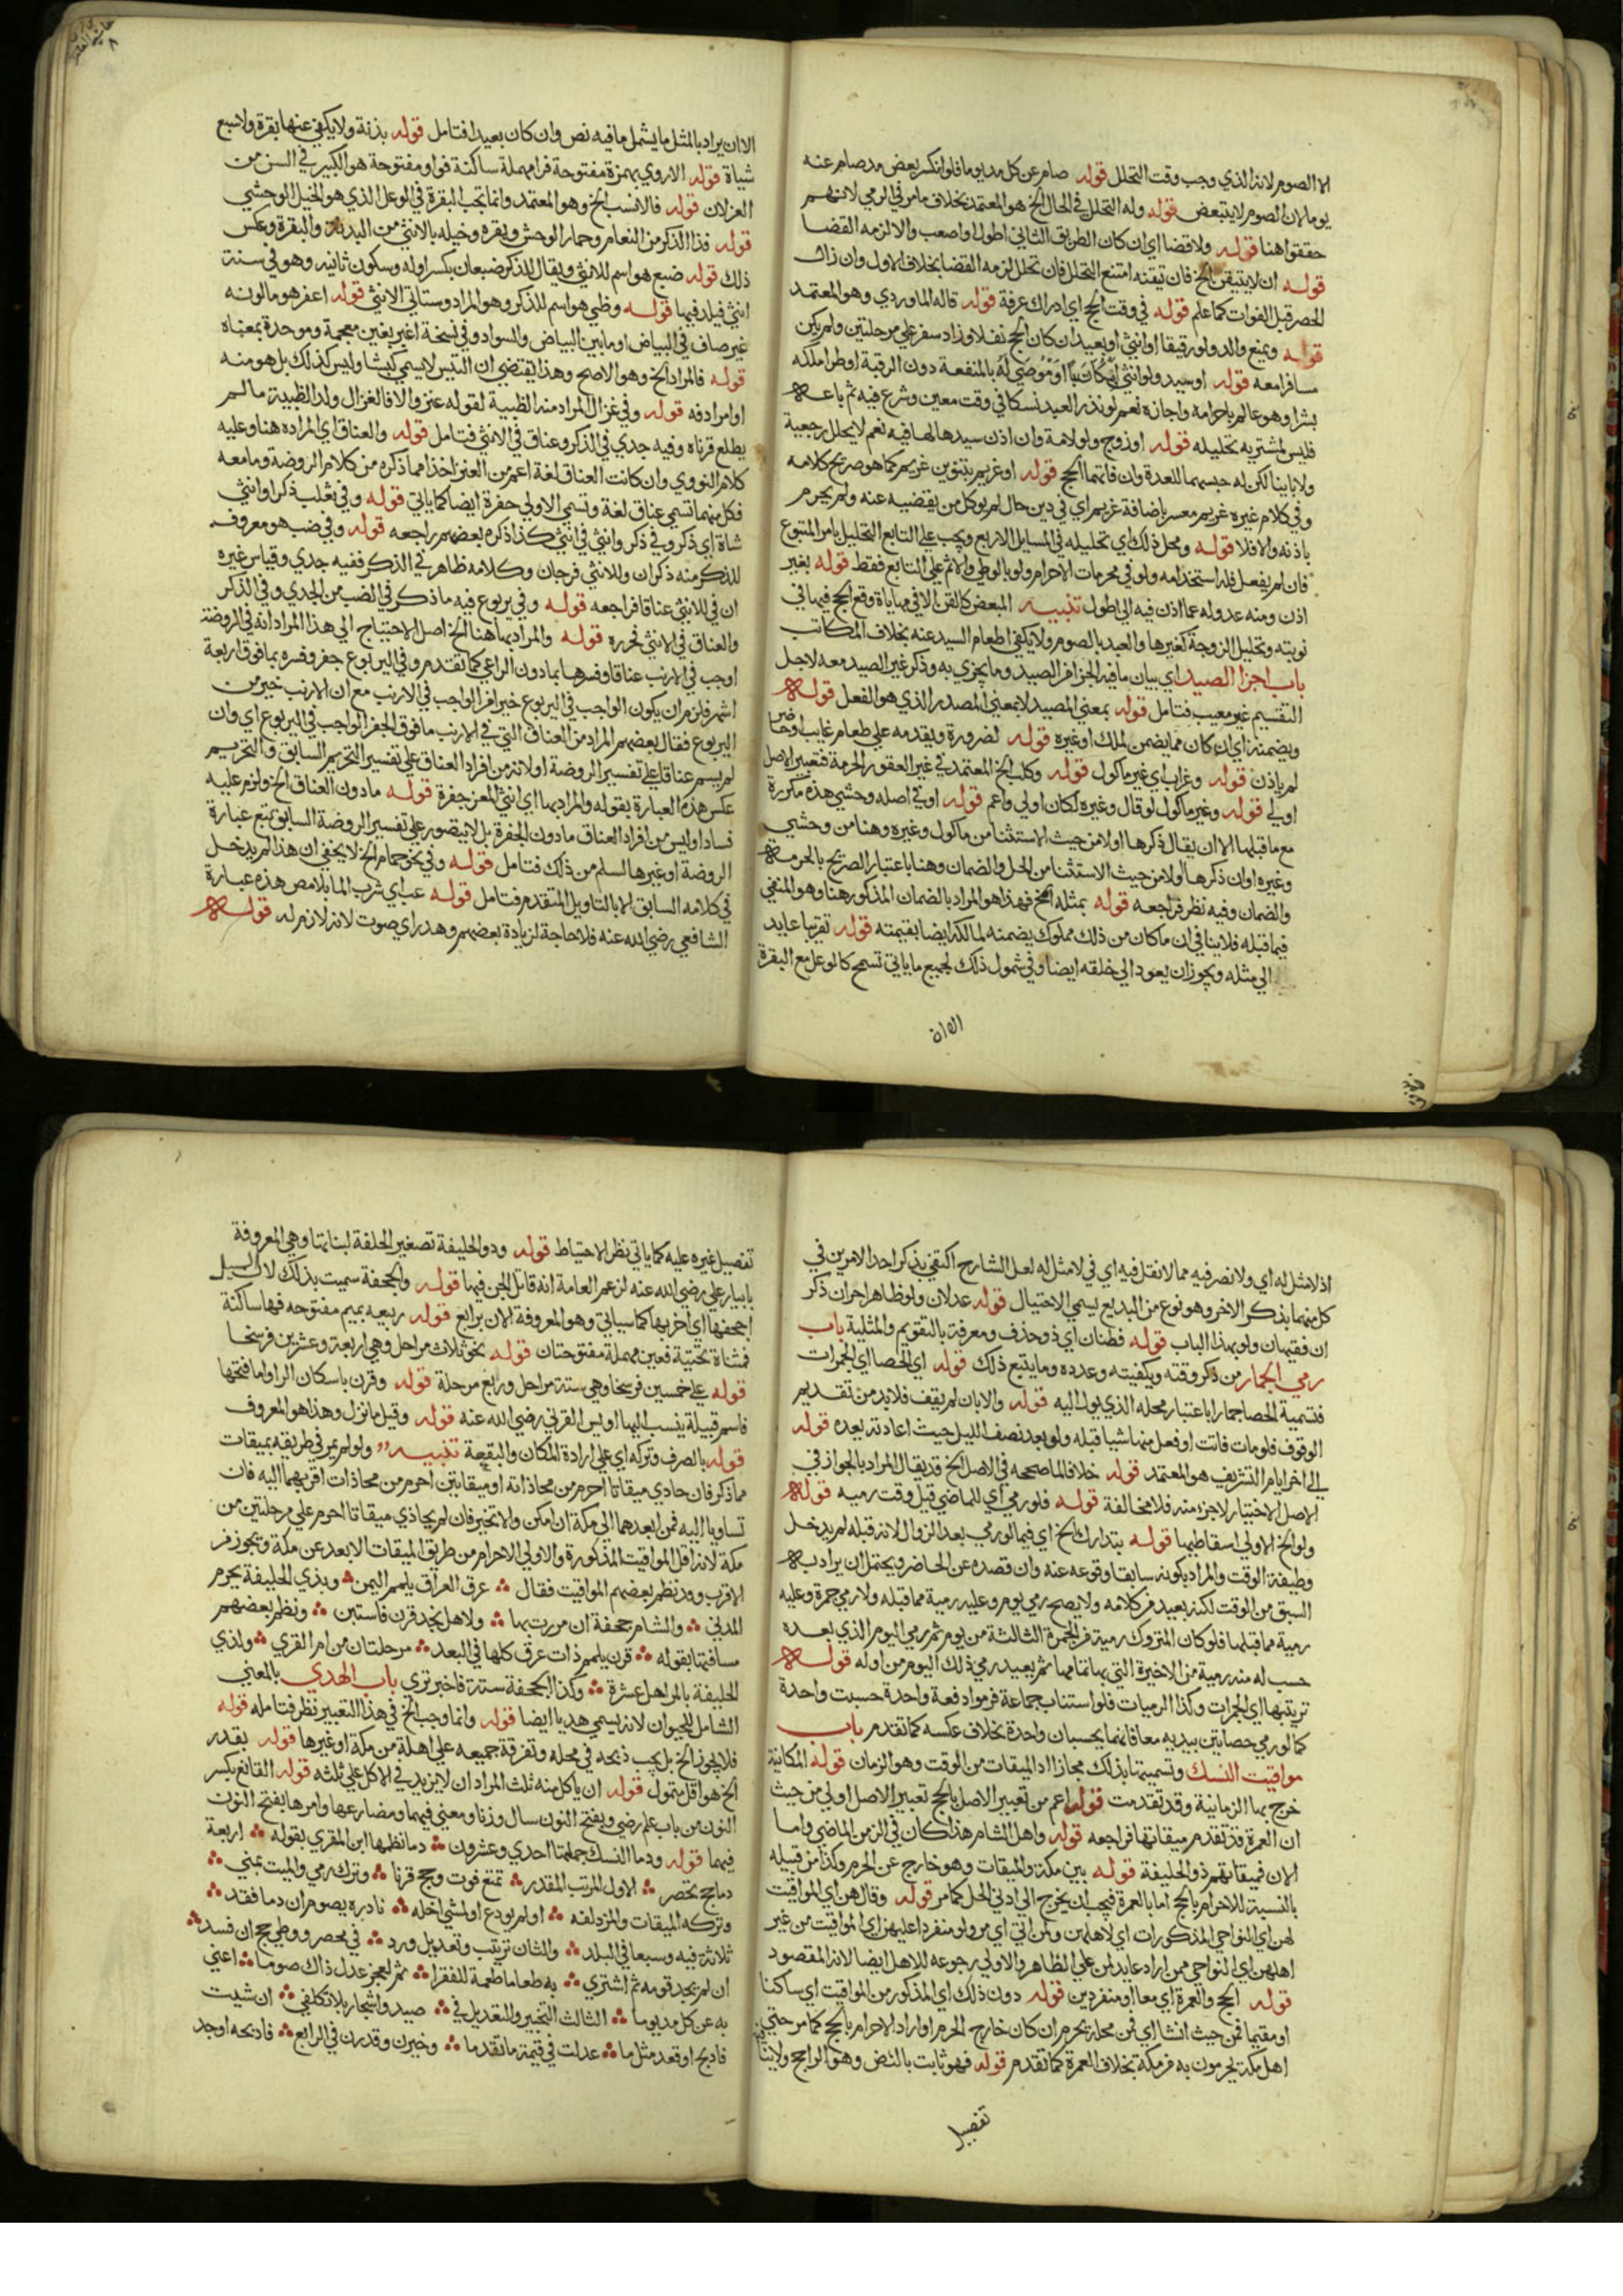 الا الصوم لانه الذي وجب وقت التحلل قوله صام عن كل مد يوما فلو انكسر بعض مد صام عنه
يوما لان الصوم لا يتبعض قوله وله التحلل في الحال الخ هو المعتمد بخلاف ما مر في الرمي لانهم
حققوا هنا قوله ولا قضا اي ان كان الطريق الثاني اطول او اصعب والا لزمه القضا
قوله ان لا يتيقن الخ فان تيقنه امتنع التحلل فان تحلل لزمه القضا بخلاف الاول وان زال
الحصر قبل الفوات كما علم قوله في وقت الحج اي ادراك عرفة قوله قاله الماوردي وهو المعتمد
قوله ويمنع والد ولو رقيقا او انثى او بعيدا ان كان الحج نفلا وزاد سفر على مرحلتين ولم يكن
مسافرا معه قوله او سيد ولو انثى او مكاتبا او موصى له بالمنفعة دون الرقبة او طرا ملكه
بشرا وهو عالم باحرامه واجازه نعم لو نذر العبد نسكا في وقت معين وشرع فيه ثم باعه
فليس لمشتريه تحليله قوله او زوج ولو لامة وان اذن سيدها لها فيه نعم لا يحلل رجعية
ولا باينا لكن له حبسهما للعدة وان فاتهما الحج قوله او غريم بتنوين غريم كما هو صريح كلامه
وفي كلام غيره غريم معسر باضافة غريم اي في دين حال لم يوكل من يقضيه عنه ولم يحرم
باذنه والا فلا قوله ومحل ذلك اي تحليله في المسايل الاربع ويجب على التابع التحليل بامر المتبوع
فان لم يفعل فله استخدامه ولو في محرمات الاحرام ولو بالوطي والاثم على التابع فقط قوله بغير
اذن ومنه عدوله عما اذن فيه الى اطول تنبيه المبعض كالقن الا في مهاياة وقع الحج فيها في
نوبته وتحليل الزوجة كغيرها والعبد بالصوم ولا يكفي اطعام السيد عنه بخلاف المكاتب
باب اجزا الصيد اي بيان ما فيه الجزا من الصيد وما يجزي به وذكر غير الصيد معه لاجل
التقسيم غير معيب فتامل قوله بمعنى المصيد لا بمعنى المصدر الذي هو الفعل قوله
ويضمنه اي ان كان مما يضمن لملك او غيره قوله لضرورة ويقدمه على طعام غايب او حاضر
لم ياذن قوله وغراب اي غير ماكول قوله وكلب الخ المعتمد في غير العقور الحرمة فتعبير الاصل
اولى قوله وغير ماكول لو قال وغيره لكان اولى واعم قوله او في اصله وحشي هذه مكررة
مع ما قبلها الا ان يقال ذكرها اولا من حيث الاستثنا من ماكول وغيره وهنا من وحشي
وغيره او ان ذكرها اولا من حيث الاستثنا من الحل والضمان وهنا باعتبار الصريح بالحرمة
والضمان وفيه نظر فراجعه قوله بمثله الخ فهذا هو المراد بالضمان المذكور هنا وهو المنفي
فيما قبله فلا ينافي ان ما كان من ذلك مملوك يضمنه لمالكه ايضا بقيمته قوله تقريبا عايد
الى مثله ويجوز ان يعود الى خلقه ايضا وفي شمول ذلك لجميع ما ياتي تسمح كالوعل مع البقرة
الا ان
الا ان يراد بالمثل ما يشمل ما فيه نص وان كان بعيدا فتامل قوله بدنة ولا يكفي عنها بقرة ولا سبع
شياة قوله الاروي بهمزة مفتوحة فرا مهملة ساكنة فواو مفتوحة هو الكبير في السن من
الغزلان قوله فالانسب الخ وهو المعتمد وانما تجب البقرة في الوعل الذي هو الخيل الوحشي
قوله فذا الذكر من النعام وحمار الوحش وبقره وخيله بالانثى من البدنة والبقرة وعكس
ذلك قوله ضبع هو اسم للانثى ويقال للذكر ضبعان بكسر اوله وسكون ثانيه وهو في سنة
انثى فيلد فيها قوله وظبي هو اسم للذكر وهو المراد وستاتي الانثى قوله اعفر هو ما لونه
غير صاف في البياض او ما بين البياض والسواد وفي نسخة اغبر بغين معجمة وموحدة بمعناه
قوله فالمراد الخ وهو الاصح وهذا يقتضي ان التيس لا يسمى كبشا وليس كذلك بل هو منه
او امرادفه قوله وفي غزال المراد منه الظبية لقوله عنز والا فالغزال ولد الظبية ما لم
يطلع قرناه وفيه جدي في الذكر وعناق في الانثى فتامل قوله والعناق اي المراده هنا وعليه
كلام النووي وان كانت العناق لغة اعم من العنز اخذا مما ذكره من كلام الروضة وما معه
فكل منهما تسمى عناق لغة وتسمى الاولى جفرة ايضا كما ياتي قوله وفي ثعلب ذكرا وانثى
شاة اي ذكر وفي ذكر وانثى في انثى كذا ذكره بعضهم راجعه قوله وفي ضب هو معروف
للذكر منه ذكران وللانثى فرجان وكلامه ظاهر في الذكر ففيه جدي وقياس غيره
ان في للانثى عناقا فراجعه قوله وفي يربوع فيه ما ذكر في الضب من الجدي وفي الذكر
والعناق في الانثى فحرره قوله والمراد بها هنا الخ اصل الاحتياج الى هذا المراد انه في الروضة
اوجب في الارنب عناقا وفسرها بما دون الراعي كما تقدم وفي اليربوع جفر وفسره بما فوق اربعة
اشهر فلزم ان يكون الواجب في اليربوع خيرا من الواجب في الارنب مع ان الارنب خير من
اليربوع فقال بعضهم المراد من العناق التي في الارنب ما فوق الجفر الواجب في اليربوع اي وان
لم يسم عناقا على تفسير الروضة او لانه من افراد العناق على تفسير التحرير السابق والتحريم
عكس هذه العبارة بقوله والمراد بها اي انثى المعز جفرة قوله ما دون العناق الخ ولزم عليه
فسادا وليس من افراد العناق ما دون الجفرة بل لا يتصور على تفسير الروضة السابق تتبع عبارة
الروضة او غيرها لسلم من ذلك فتامل قوله وفي نحو حمام الخ لا يخفى ان هذا لم يدخل
في كلامه السابق الا بالتاويل المتقدم فتامل قوله عب اي شرب الما بلا مص هذه عبارة
الشافعي رضي الله عنه فلا حاجة لزيادة بعضهم وهدر اي صوت لانه لازم له قوله
اذ لا مثل له اي ولا نص فيه مما لا نقل فيه اي في لا مثل له لعل الشارح اكتفى بذكر احد الامرين في
كل منهما بذكر الاخر وهو نوع من البديع يسمى الاحتيال قوله عدلان ولو ظاهرا حران ذكر
ان فقيهان ولو بهذا الباب قوله فطنان اي ذو حذف ومعرفة بالتقويم والمثلية باب
رمي الجمار من ذكر وقته وكيفيته وعدده وما يتبع ذلك قوله اي الحصا اي الجمرات
فتسمية الحصا جمارا باعتبار محله الذي يول اليه قوله والا بان لم يقف فلا بد من تقديم
الوقوف فلو مات فاتت او فعل منها شيا قبله ولو بعد نصف الليل حيث اعادته بعده قوله
الى اخر ايام التشريف هو المعتمد قوله خلافا لما صححه في الاصل الخ قد يقال المراد بالجواز في
الاصل الاختيار لا جزء منه فلا مخالفة قوله فلو رمى اي للماضي قبل وقت رميه قوله
ولو الخ الاولى اسقاطها قوله بتدارك الخ اي فيما لو رمى بعد الزوال لانه قبله لم يدخل
وظيفة الوقت والمراد بكونه سابقا وقوعه عنه وان قصده عن الحاضر ويحتمل ان يراد به
السبق من الوقت لكنه بعيد من كلامه ولا يصح رمي يوم وعليه رمية مما قبله ولا رمي جمرة وعليه
رمية مما قبلها فلو كان المتروك رمية من الجمرة الثالثة من يوم ثم رمى اليوم الذي بعده
حسب له منه رمية من الاخيرة التي بها تمامها ثم يعيد رمي ذلك اليوم من اوله قوله
ترتيبها اي الجمرات وكذا الرميات فلو استناب جماعة فرموا دفعة واحدة حسبت واحدة
كما لو رمى حصاتين بيديه معا فانهما يحسبان واحدة بخلاف عكسه كما تقدم باب
مواقيت النسك وتسميتها بذلك مجازا اذ الميقات من الوقت وهو الزمان قوله المكانية
خرج بها الزمانية وقد تقدمت قوله اعم من تعبير الاصل بالحج تعبير الاصل اولى من حيث
ان العمرة قد تقدم ميقاتها فراجعه قوله واهل الشام هذا كان في الزمن الماضي واما
الان فميقاتهم ذو الحليفة قوله بين مكة والميقات وهو خارج عن الحرم وكذا من قبيله
بالنسبة للاحرام بالحج اما بالعمرة فيجب ان يخرج الى ادنى الحل كما مر قوله وقال هن اي المواقيت
لهن اي النواحي المذكورات اي لاهلهن ولمن اتى اي مر ولو منفردا عليهن اي المواقيت من غير
اهلهن اي النواحي ممن اراد عايد لمن على الظاهر والاولى رجوعه للاهل ايضا لانه المقصود
قوله الحج والعمرة اي معا او منفردين قوله دون ذلك اي المذكور من المواقيت اي ساكنا
او مقيما فمن حيث انشا اي فمن محله يحرم ان كان خارج الحرم او اراد الاحرام بالحج كما مر حتى
اهل مكة يحرمون به من مكة بخلاف العمرة كما تقدم قوله فهو ثابت بالنص وهو الراجح ولا ينافيه
تفصيل
تفصيل غيره عليه كما ياتي نظر الاحتياط قوله وذو الحليفة تصغير الحلفة لبناتها وهي المعروفة
بابيار علي رضي الله عنه لزعم العامة انه قاتل الجن فيها قوله والجحفة سميت بذلك لان السيل
اجحفها اي اخربها كما سياتي وهو المعروفة الان برابغ قوله ربيعه بميم مفتوحه فها ساكنة
فمثناة تحتية فعين مهملة مفتوحتان قوله نحو ثلاث مراحل وهي اربعة وعشرين فرسخا
قوله على خمسين فرسخا وهي ستة مراحل ورابغ مرحلة قوله وقرن باسكان الراء اما فتحها
فاسم قبيلة ينسب اليها اويس القرني رضي الله عنه قوله وقيل ما نزل وهذا هو المعروف
قوله بالصرف وتركه اي على ارادة المكان والبقعة تنبيه ولو لم يمر في طريقه بميقات
مما ذكر فان حاذى ميقاتا احرم من محاذاته او ميقاتين احرم من محاذات اقربهما اليه فان
تساويا اليه فمن ابعدهما الى مكة ان امكن والا تخير فان لم يحاذي ميقاتا احرم على مرحلتين من
مكة لانه اقل المواقيت المذكورة والاولى الاحرام من طريق الميقات الابعد عن مكة ويجوز من
الاقرب وقد نظم بعضهم المواقيت فقال عرق العراق يلملم اليمن وبذي الحليفة يحرم
المدني والشام جحفة ان مررت بها ولاهل نجد قرن فاستبن ونظم بعضهم
مسافتها بقوله قرن يلملم ذات عرق كلها في البعد مرحلتان من ام القرى ولذي
الحليفة بالمراحل عشرة وكذا الجحفة ستة فاخبر ترى باب الهدي بالمعنى
الشامل للحيوان لانه يسمى هديا ايضا قوله وانما وجب الخ في هذا التعبير نظر فتامله قوله
فلا يجوز الخ بل يجب ذبحه في محله وتفرقة جميعه على اهله من مكة او غيرها قوله بقدر
الخ هو اقل متمول قوله ان ياكل منه ثلث المراد ان لا يزيد في الاكل على ثلثه قوله القانع بكسر
النون من باب علم رضي وبفتح النون سال وزنا ومعنى فيهما ومضارعها وامرها بفتح النون
فيها قوله ودما النسك جملتها احدى وعشرون دما نظمها ابن المقري بقوله اربعة
دما حج تحصر الاول المرتب المقدر تمتع فوت وحج قرنا وترك رمي والمبيت بمنى
وتركه الميقات والمزدلفه او لم يودع او لمشي اخلفه ناذره يصوم ان دما فقد
ثلاثة فيه وسبعا في البلد والثان ترتيب وتعديل ورد في محصر ووطي حج ان فسد
ان لم يجد قومه ثم اشترى به طعاما طعمة للفقرا ثم لعجز عدل ذاك صوما اعني
به عن كل مد يوما الثالث التخيير والتعديل في صيد واشجار بلا تكلف ان شيت
فاذبح او فعد مثل ما عدلت في قيمة ما تقدما وخيرن وقدرن في الرابع فاذبحه او جد